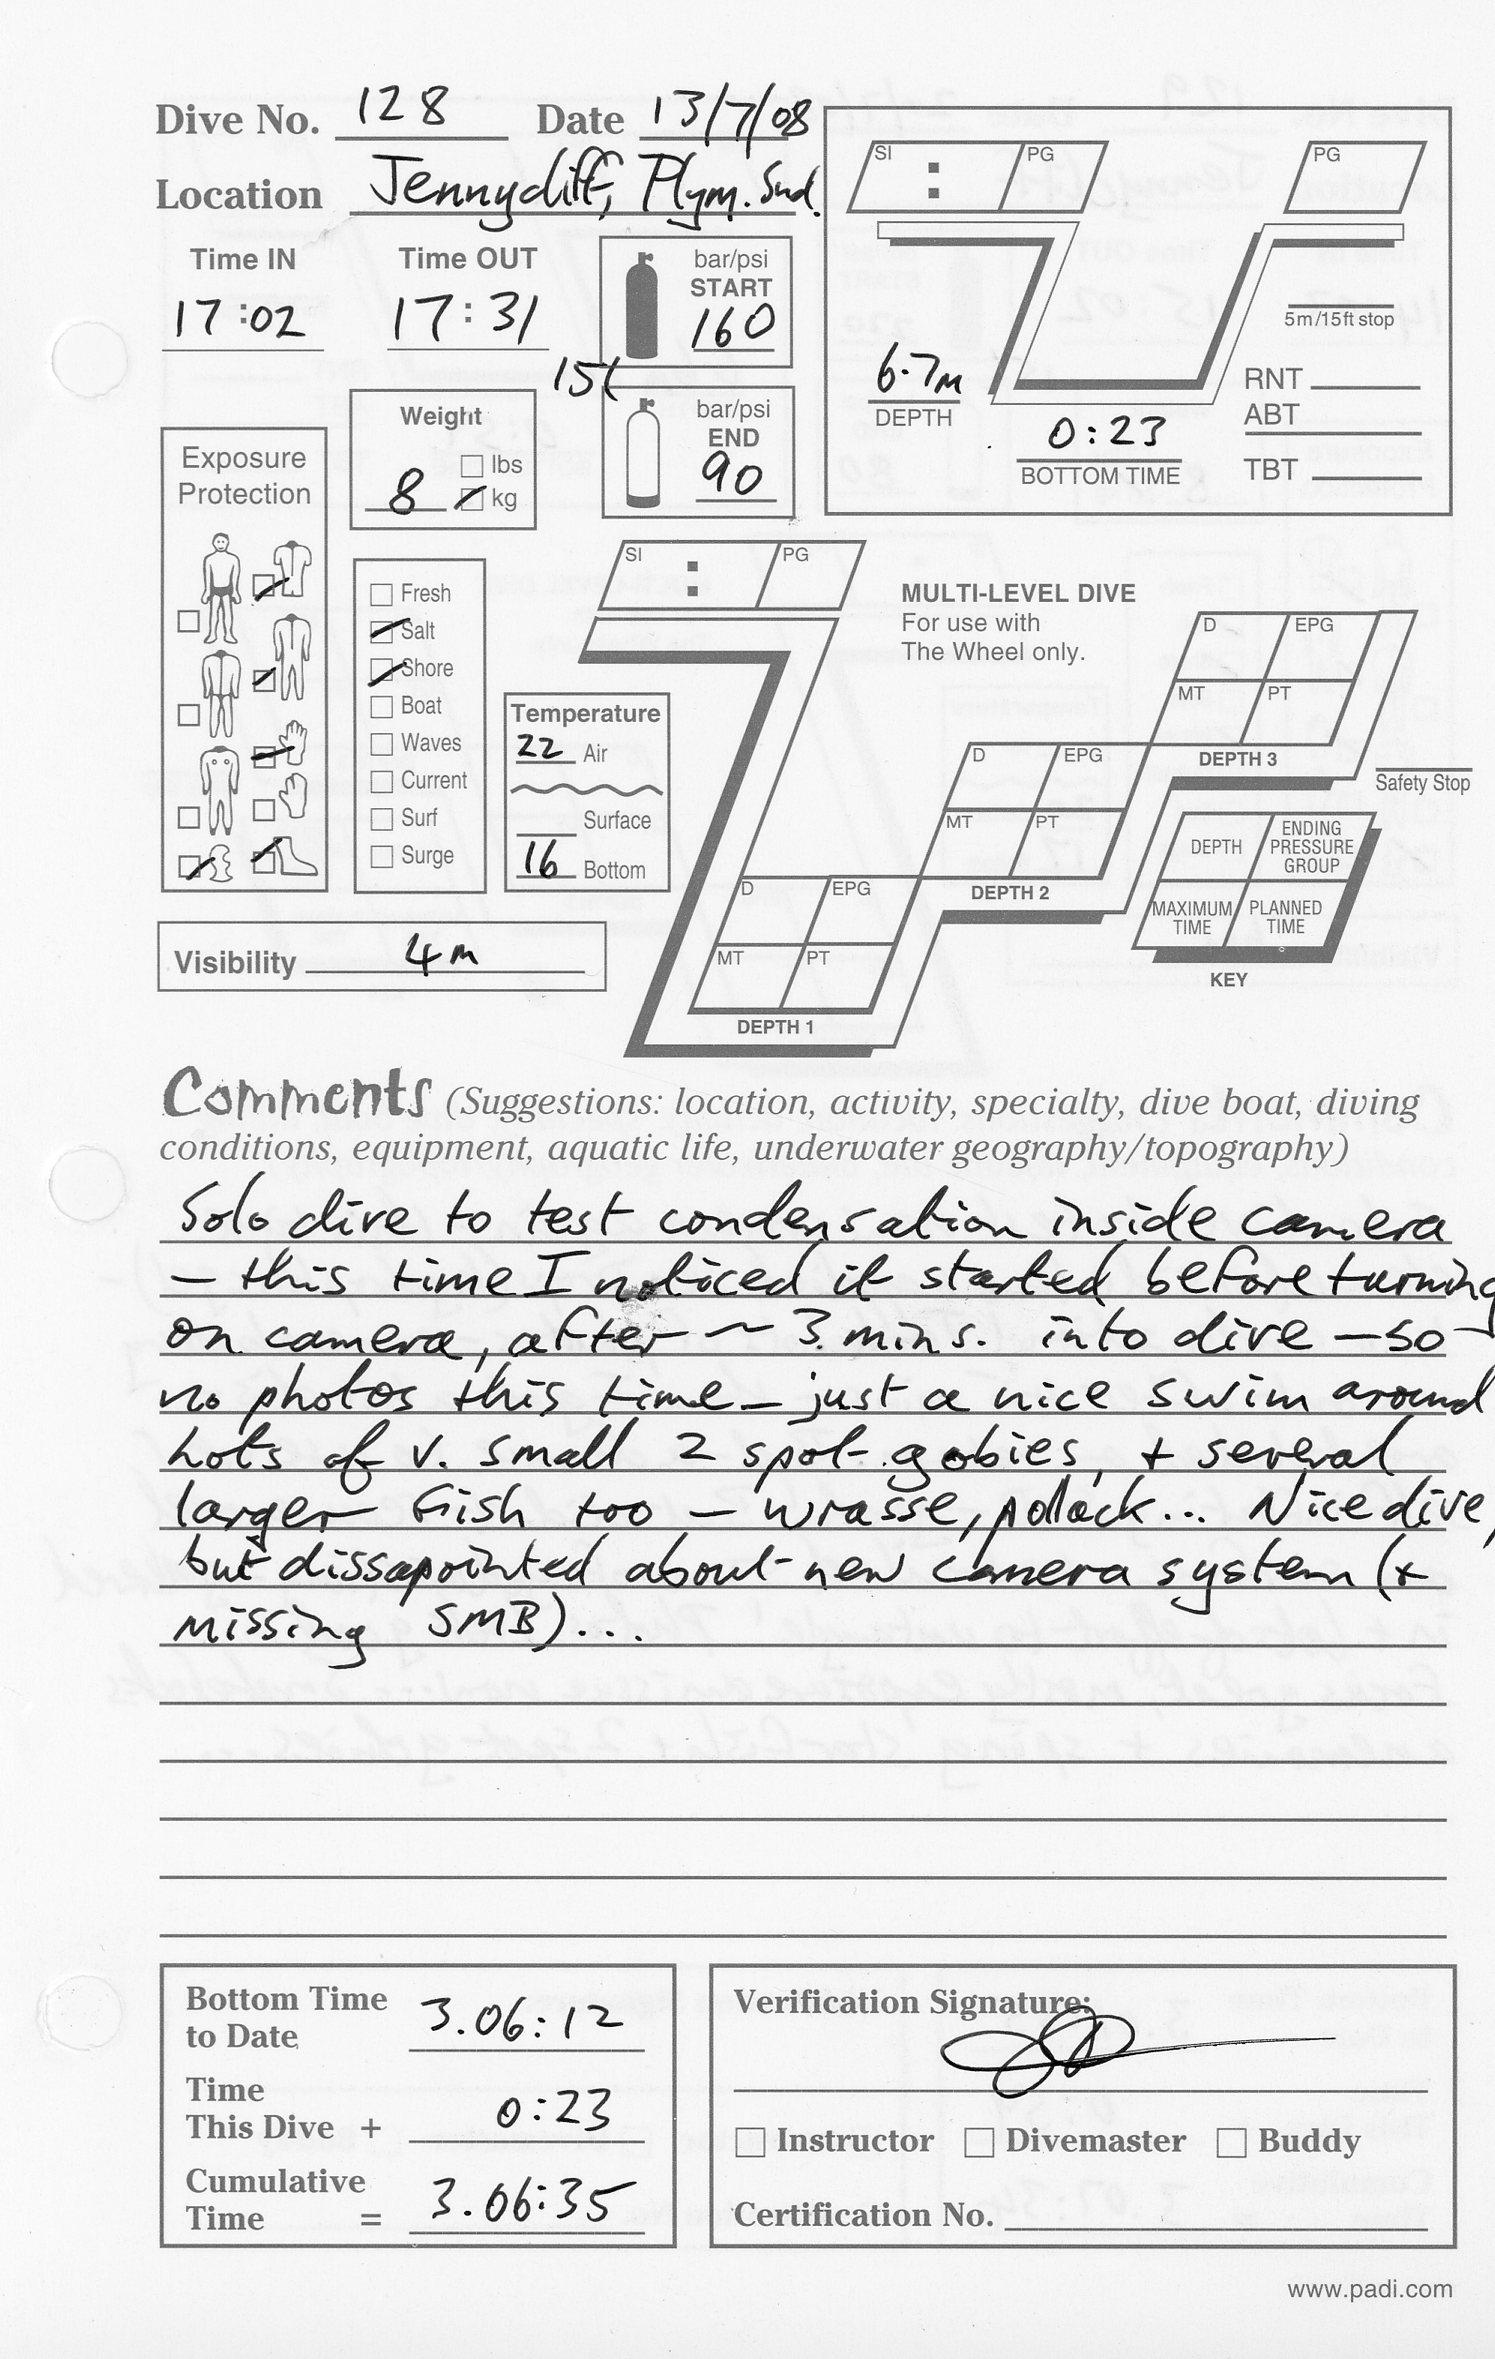 Dive No. 128 Date 13/7/08
Location Jennycliff, Plym. Snd.
Time IN Time OUT
17:02 17:31
bar/psi
START
160
15l
bar/psi
END
90
Weight
8
lbs
kg
SI : PG PG
5m/15ft stop
6.7m
DEPTH
0:23
BOTTOM TIME
RNT
ABT
TBT
Exposure
Protection
Fresh
Salt
Shore
Boat
Waves
Current
Surf
Surge
Temperature
22 Air
Surface
16 Bottom
Visibility 4m
SI : PG
MULTI-LEVEL DIVE
For use with
The Wheel only.
D EPG
MT PT
DEPTH 3
Safety Stop
D EPG
MT PT
DEPTH 2
D EPG
MT PT
DEPTH 1
DEPTH
ENDING
PRESSURE
GROUP
MAXIMUM
TIME
PLANNED
TIME
KEY
Comments (Suggestions: location, activity, specialty, dive boat, diving
conditions, equipment, aquatic life, underwater geography/topography)
Solo dive to test condensation inside camera
— this time I noticed it started before turning
on camera, after ~ 3 mins. into dive — so
no photos this time — just a nice swim around
Lots of v. small 2 spot gobies, + several
larger fish too — wrasse, pollack... Nice dive,
but dissapointed about new camera system (+
missing SMB)...
Bottom Time
to Date 3.06:12
Time
This Dive + 0:23
Cumulative
Time = 3.06:35
Verification Signature:
Instructor Divemaster Buddy
Certification No.
www.padi.com